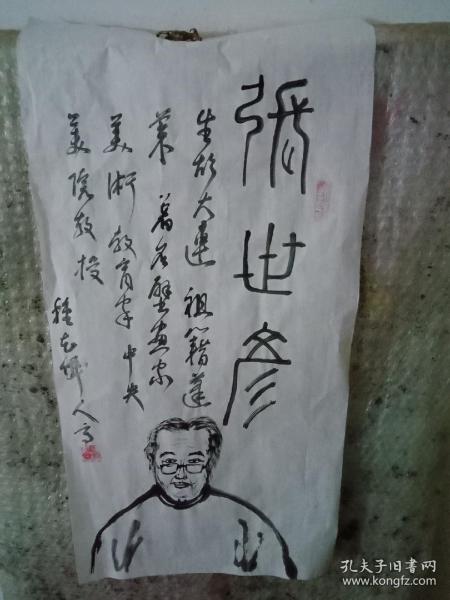 張世彦
生於大連 祖籍蓬
萊 著名壁画家
美術教育家 中央
美院教授
孔夫子旧书网
www.kongfz.com